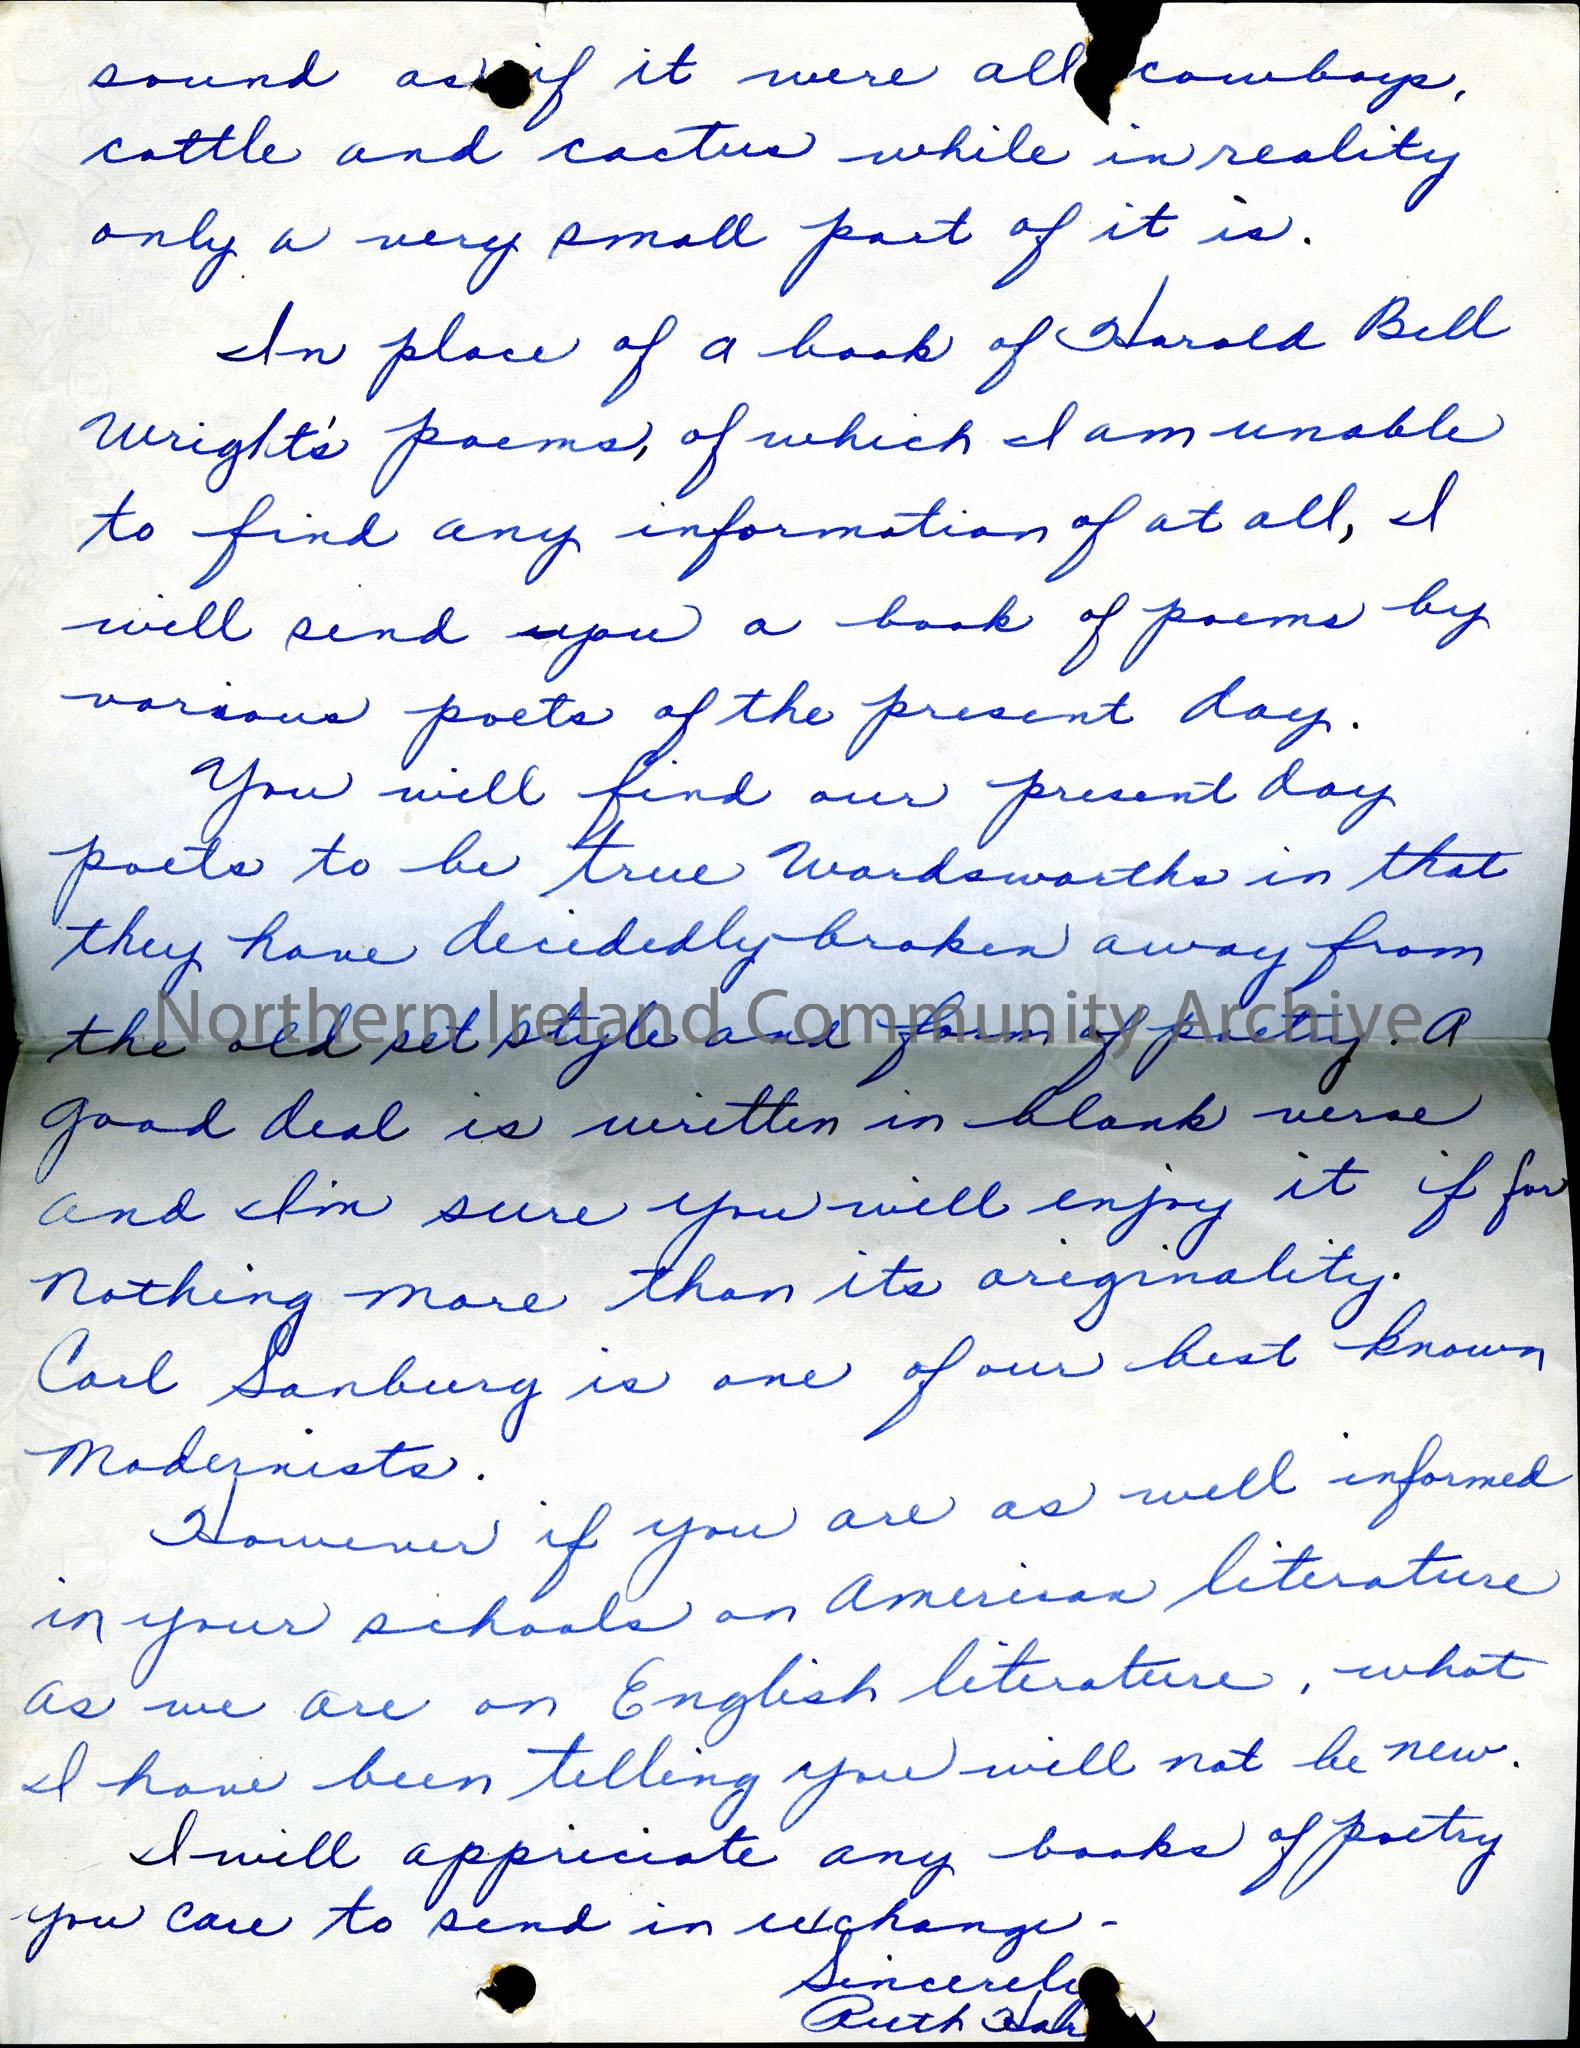 sound as if it were all cowboys,
cattle and cactus while in reality
only a very small part of it is.
In place of a book of Harold Bell
Wright's poems, of which I am unable
to find any information of at all, I
will send you a book of poems by
various poets of the present day.
You will find our present day
poets to be true Wordsworths in that
they have decidedly broken away from
the old set style and form of poetry. A
good deal is written in blank verse
and I'm sure you will enjoy it if for
nothing more than its originality.
Carl Sanburg is one of our best known
Modernists.
However if you are as well informed
in your schools on American literature
as we are on English literature, what
I have been telling you will not be new.
I will appriciate any books of poetry
you care to send in exchange -
Sincerely
Ruth
Northern Ireland Community Archive